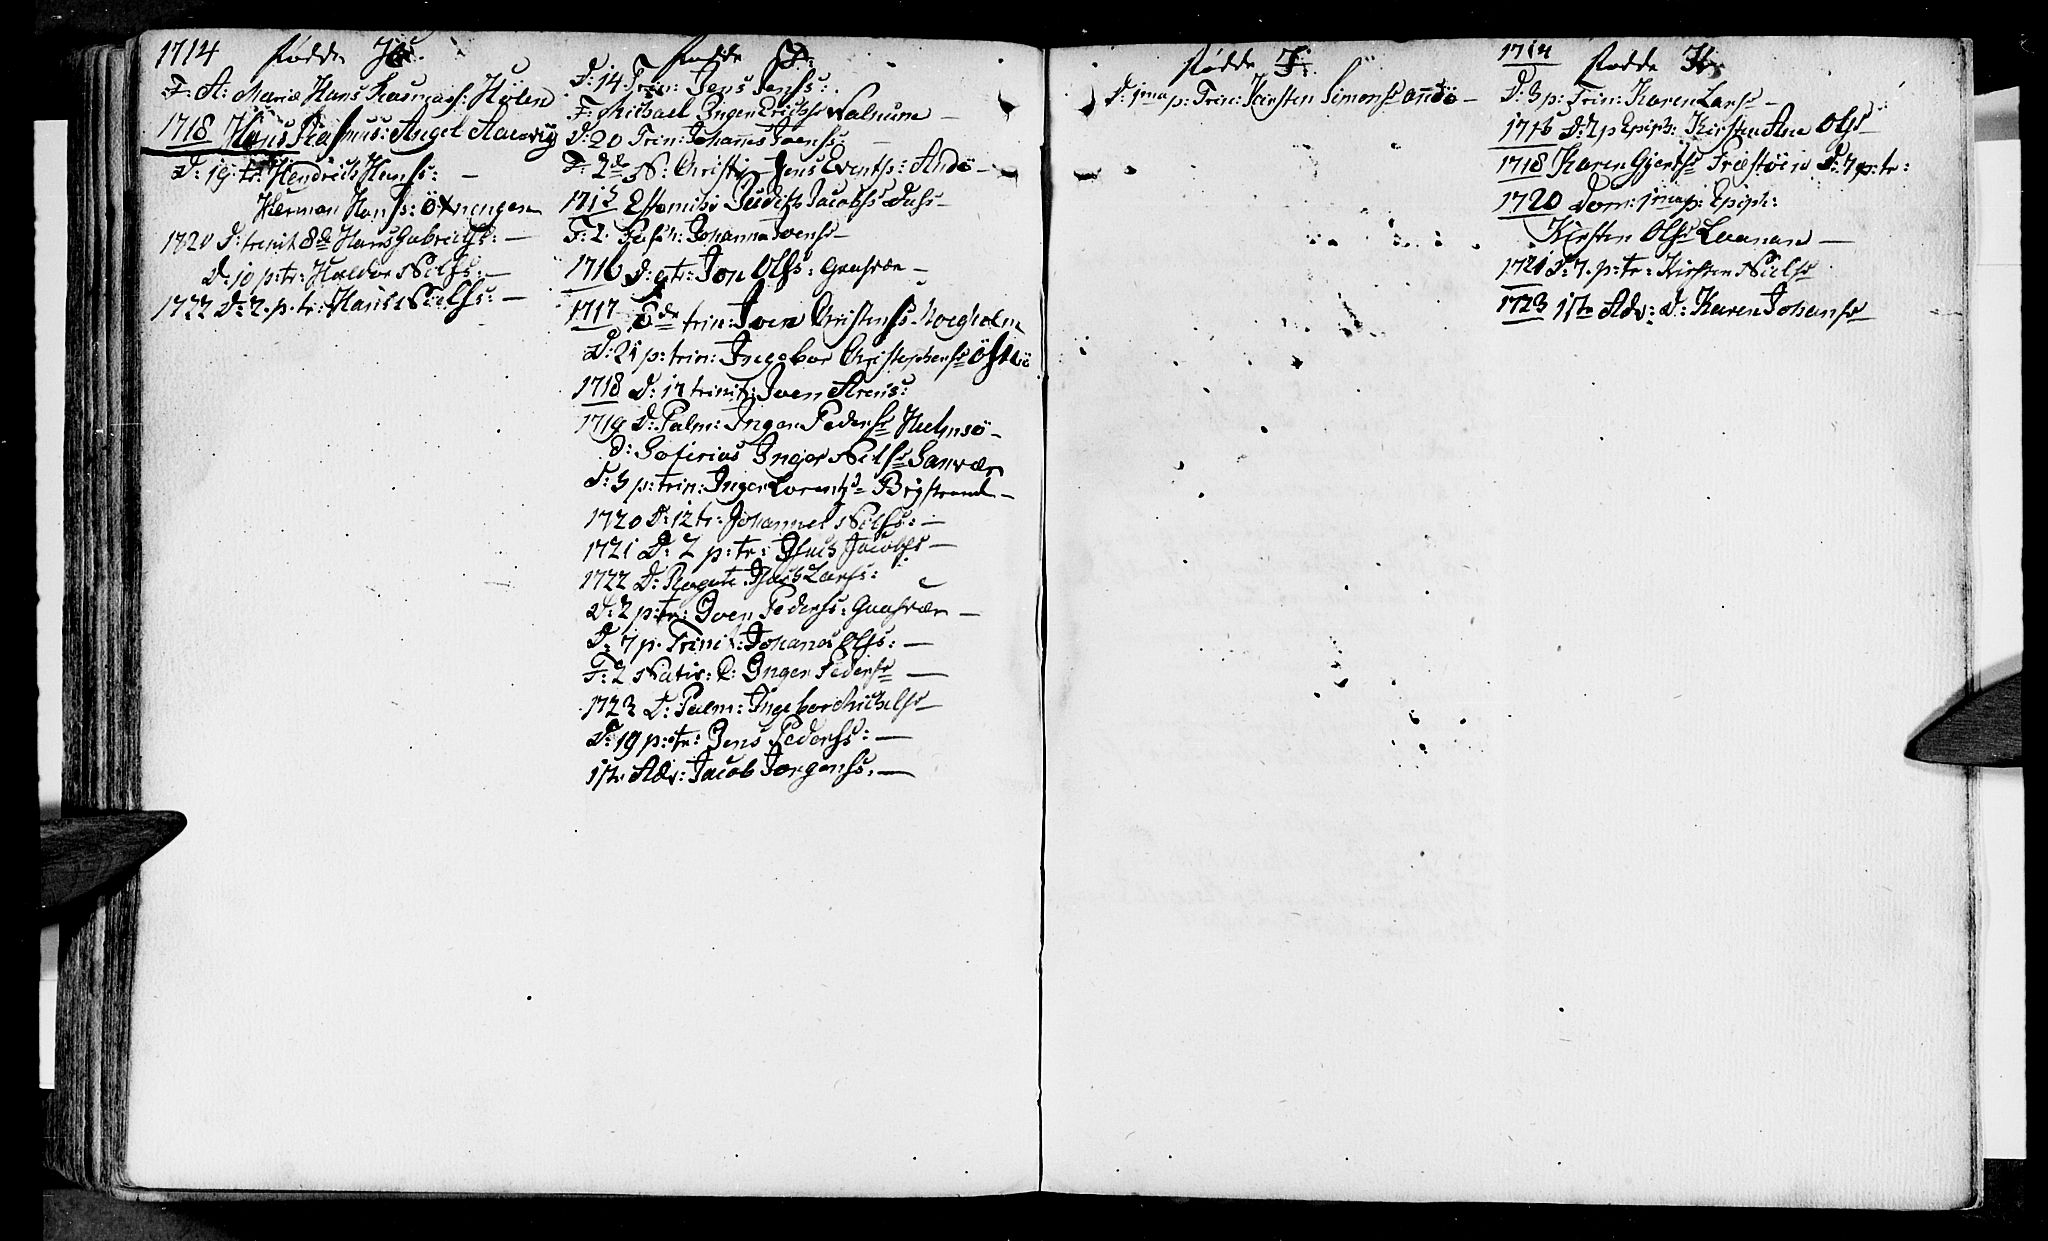 1714 Fødde H:
F: A: Mariæ Hans Rasmuss: Hølen
1718 Hans Rasmus: Angel Aaesvig
D: 19 tr: Hendrich Hanss: —
Herman Hanss: Öxningen
1720 D: trinit 8de Hans Gabrielss: —
D: 10 p: tr: Haldor Nilss: —
1722 D: 2. p. tr: Hans Nielss: —
Fødde J:
D: 14 Trin: Jens Jenss:
F: Michael Inger Erichsr Valnum —
D: 20 Trin: Johanes Ivenss —
F: 2de N: Christi — Jens Evertss: Andö —
1715 Estomihi Judith Jacobsr Dus —
F: 2. Pasch: Johanna Ivensr —
1716 D: 9 tr: Jon Olss: Gaasvær —
1717 8de trin: Iven Christenss
D: 21 p: trin: Ingebor Christophersr
1718 D: 17 trinit: Iven Arens:
1719 D: Palm: Inger Pedersr Hielmsö —
D: Inger Nilsr Sanvær
D: 3 p: trin: Inger Lorentzr Bÿstrand —
1720 D: 12 tr: Johannes Nilss: —
1721 D: 2 p: tr: Isach Jacobss —
1722 D: Rogate Isach Larss:
D: 2 p: tr: Iven Pederss: Gaasvær —
D: 7 p. Trinit: Johanes Olss: —
F: 2 Nativ: D: Inger Pedersr —
1723 D: Palm: Ingebor Michelsr —
D: 19 p: tr: Jens Pederss: —
1te Adv: Jacob Jörgenss: —
Fødde
D: 1ma p: Trin: Kirsten Simonsr Andö —
1714 Fødde K:
D: 3 p: Trin: Karen Larsr —
1716 D: 2 p Epiph: Kirsten Ane Olsr
1718 Karen Gjertsr Præstöen D: 7 p: tr:
1720 Dom: 1ma p: Epiph:
Kirsten Olsr Laanan —
1721 D: 7. p: tr: Kirsten Nielsr
1723 1te Adv: D: Karen Johansr